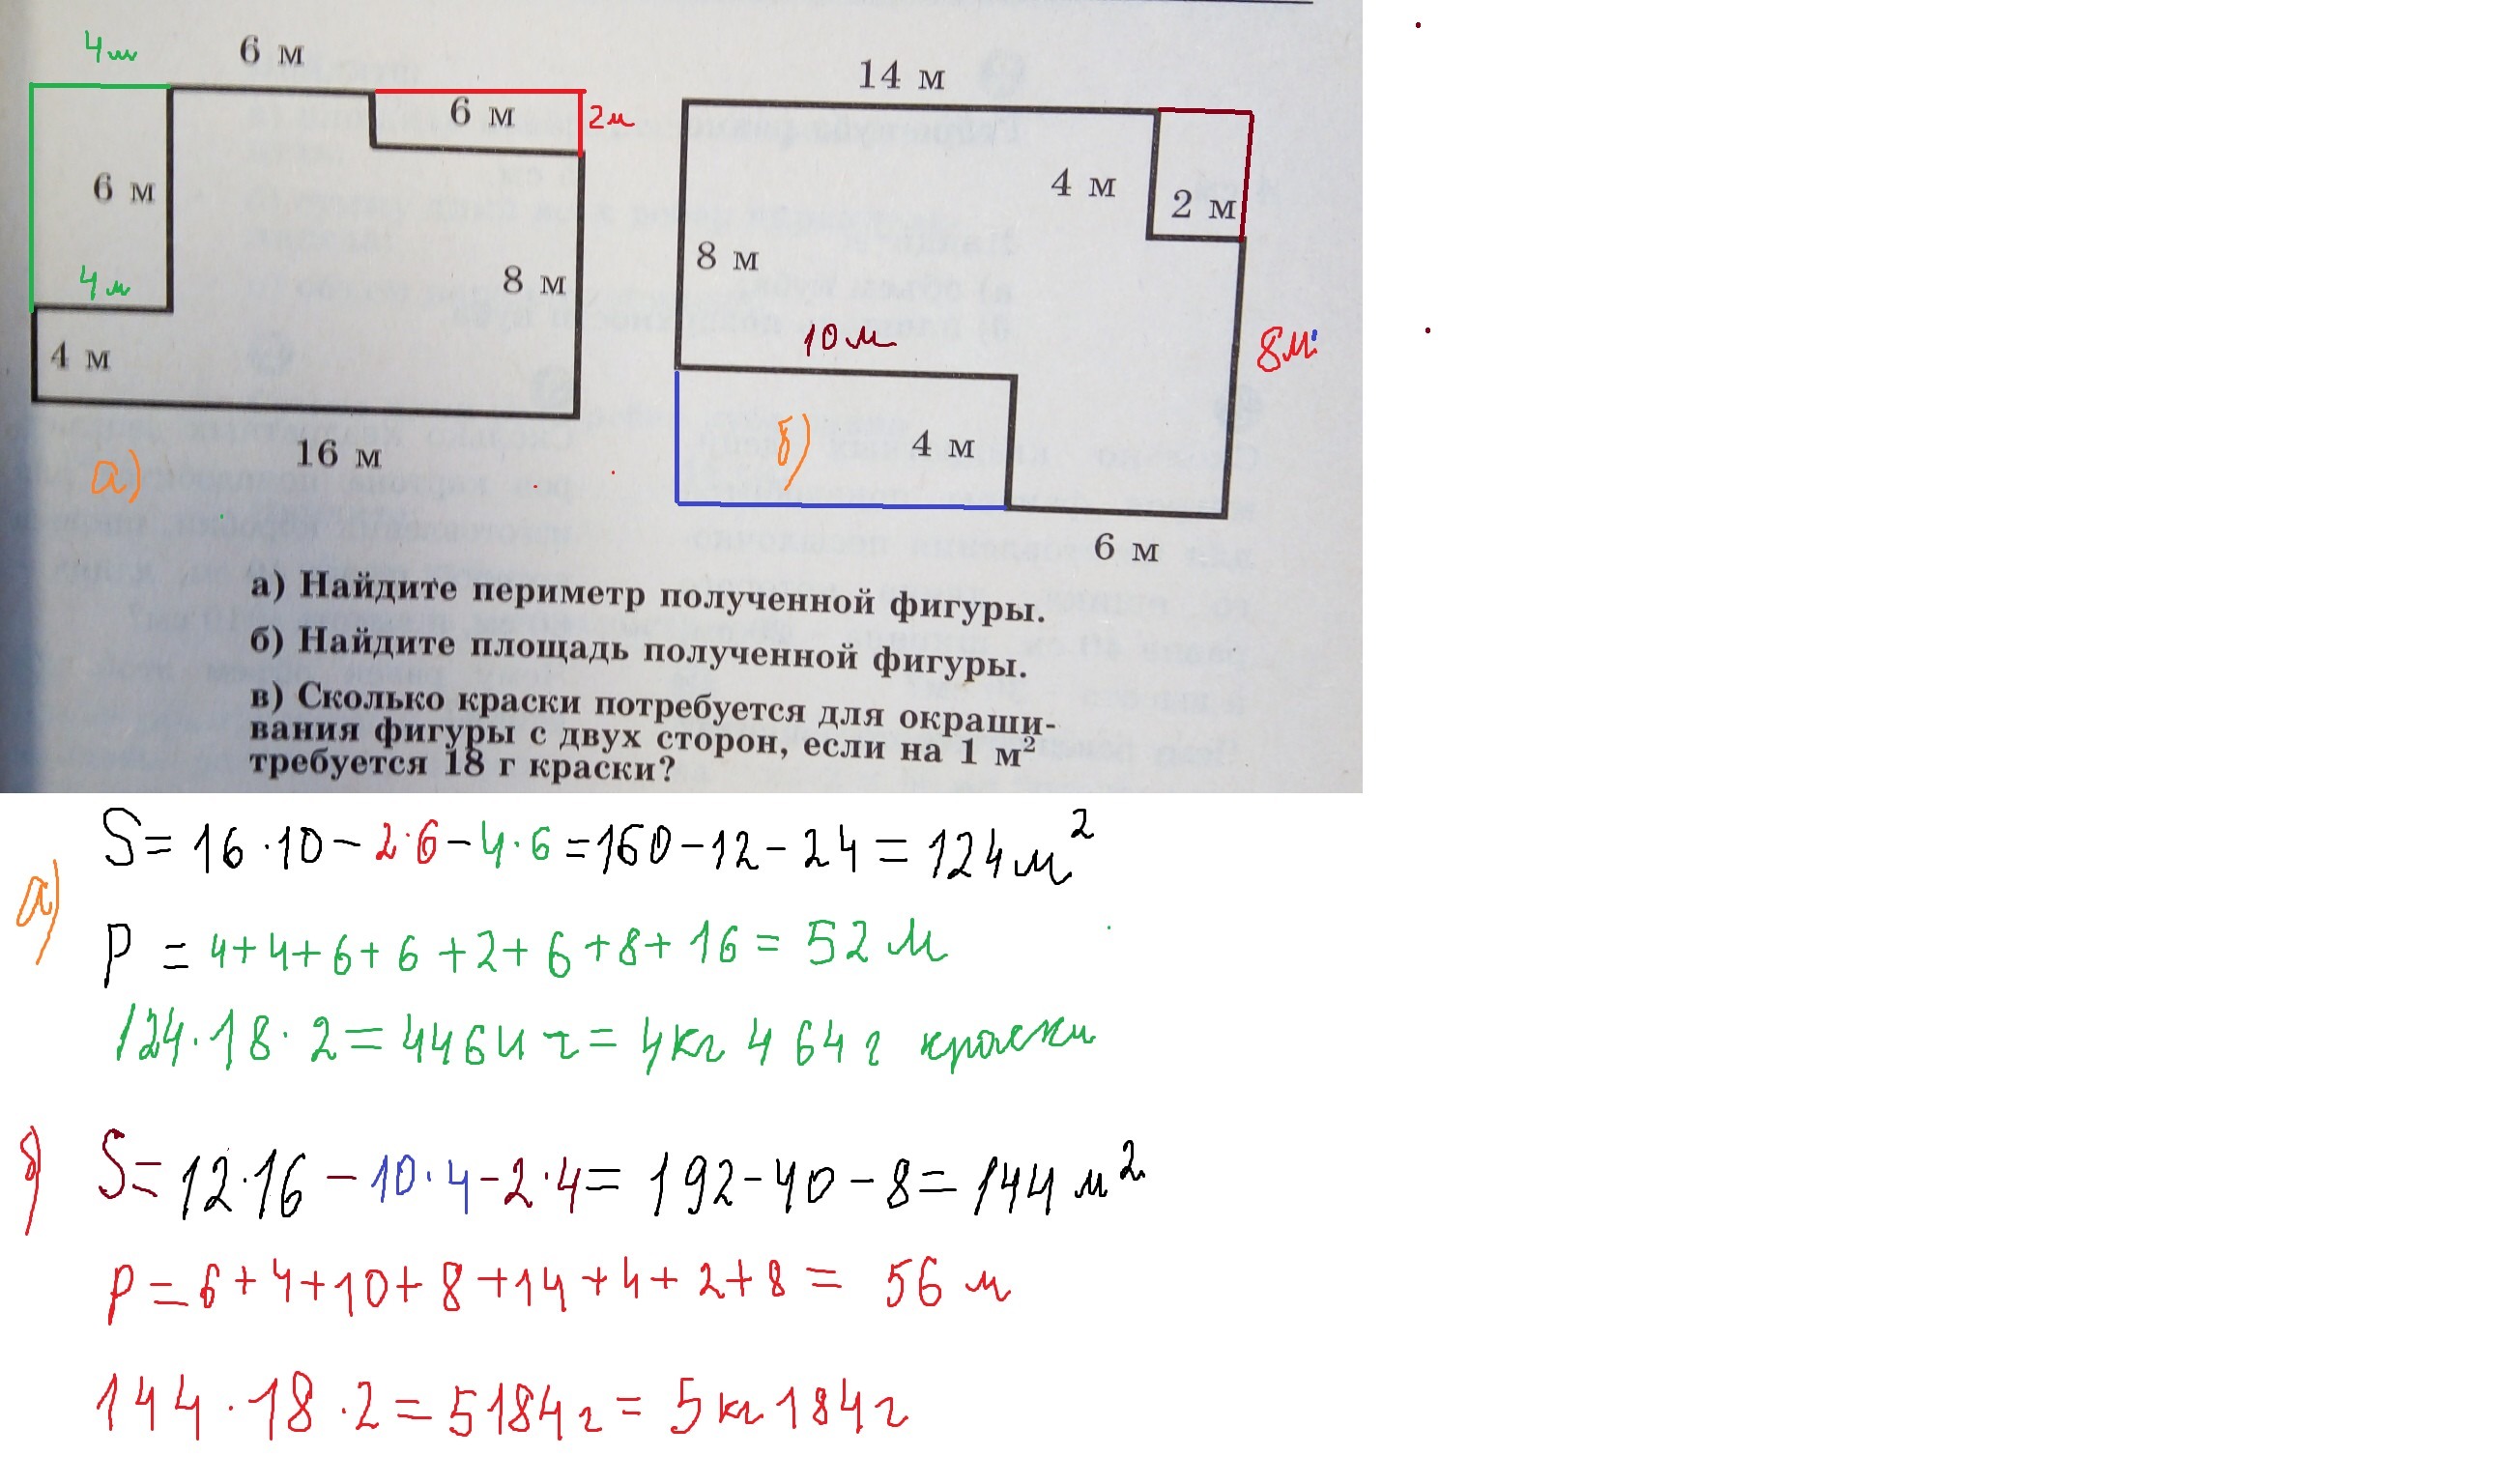 4м
6 м
6 м
2м
6 м
4м
8 м
4 м
16 м
а)
14 м
4 м
2 м
8 м
10 м
8м
б)
4 м
6 м
а) Найдите периметр полученной фигуры.
б) Найдите площадь полученной фигуры.
в) Сколько краски потребуется для окраши-
вания фигуры с двух сторон, если на 1 м²
требуется 18 г краски?
а)
S = 16 · 10 - 2 · 6 - 4 · 6 = 160 - 12 - 24 = 124 м²
P = 4 + 4 + 6 + 6 + 2 + 6 + 8 + 16 = 52 м
124 · 18 · 2 = 4464 г = 4 кг 464 г краски
б)
S = 12 · 16 - 10 · 4 - 2 · 4 = 192 - 40 - 8 = 144 м²
P = 6 + 4 + 10 + 8 + 14 + 4 + 2 + 8 = 56 м
144 · 18 · 2 = 5184 г = 5 кг 184 г